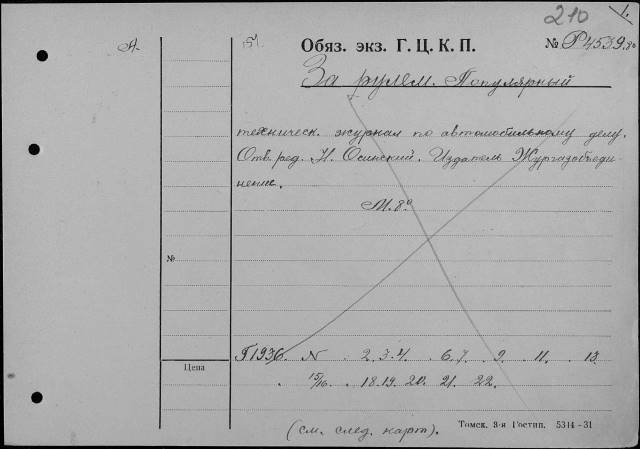 210 1.
А. 151. Обяз. экз. Г. Ц. К. П. № Р4539.80
За рулем. Популярный
техническ. журнал по автомобильному делу.
Отв. ред. Н. Осинский. Издатель Жургазобъеди-
нение.
М. 8°
№
Г1936. N 2. 3. 4. 6. 7. 9. 11. 13
Цена
15/16. 18. 19. 20. 21. 22.
(см. след. карт).
Томск. 3-я Гостип. 5314–31